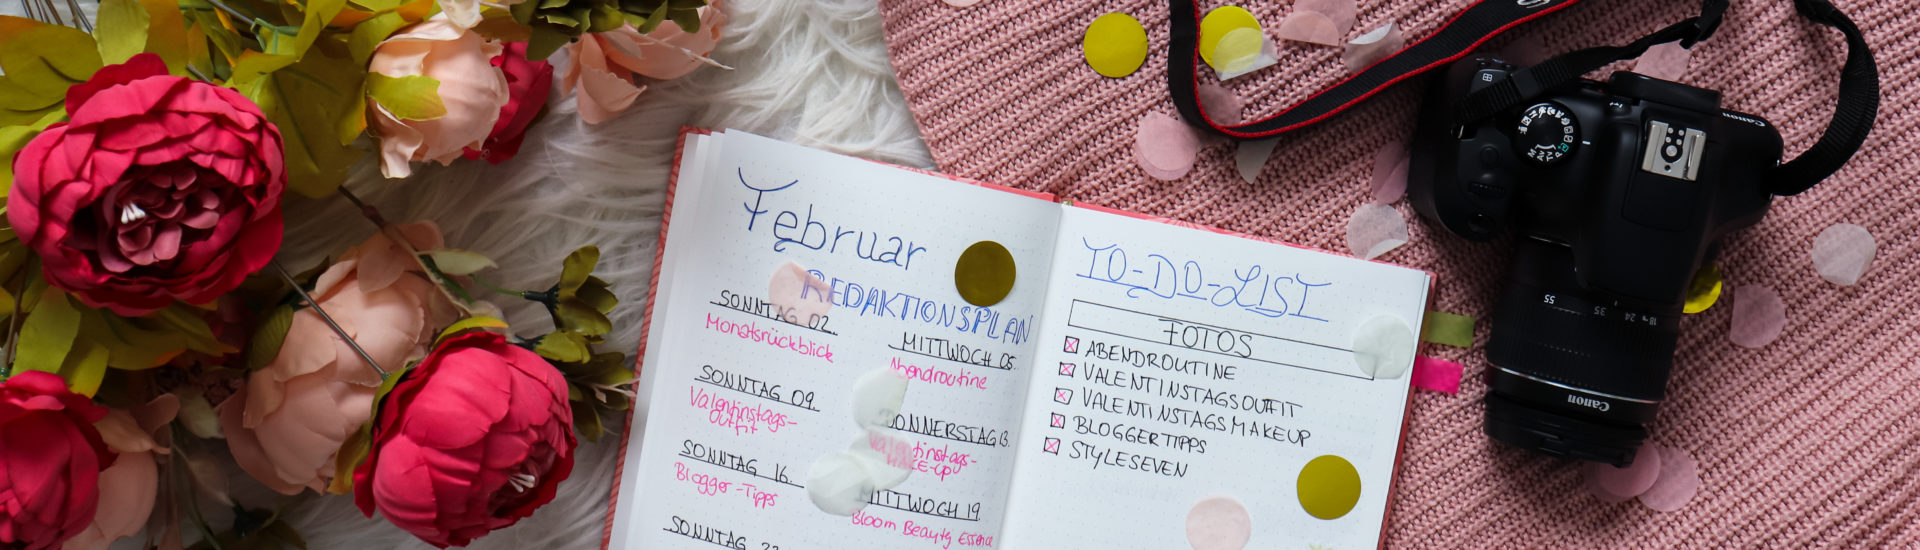 Februar
REDAKTIONSPLAN
SONNTAG 02.
Monatsrückblick
MITTWOCH 05.
Abendroutine
SONNTAG 09.
Valentinstags-
outfit
DONNERSTAG 13.
Valentinstags-
SONNTAG 16.
Blogger-Tipps
MITTWOCH 19.
Bloom Beauty Essence
SONNTAG
TO-DO-LIST
FOTOS
ABENDROUTINE
VALENTINSTAGSOUTFIT
VALENTINSTAGSMAKEUP
BLOGGERTIPPS
STYLESEVEN
Canon
M Av Tv P
55 35 24 18
Canon